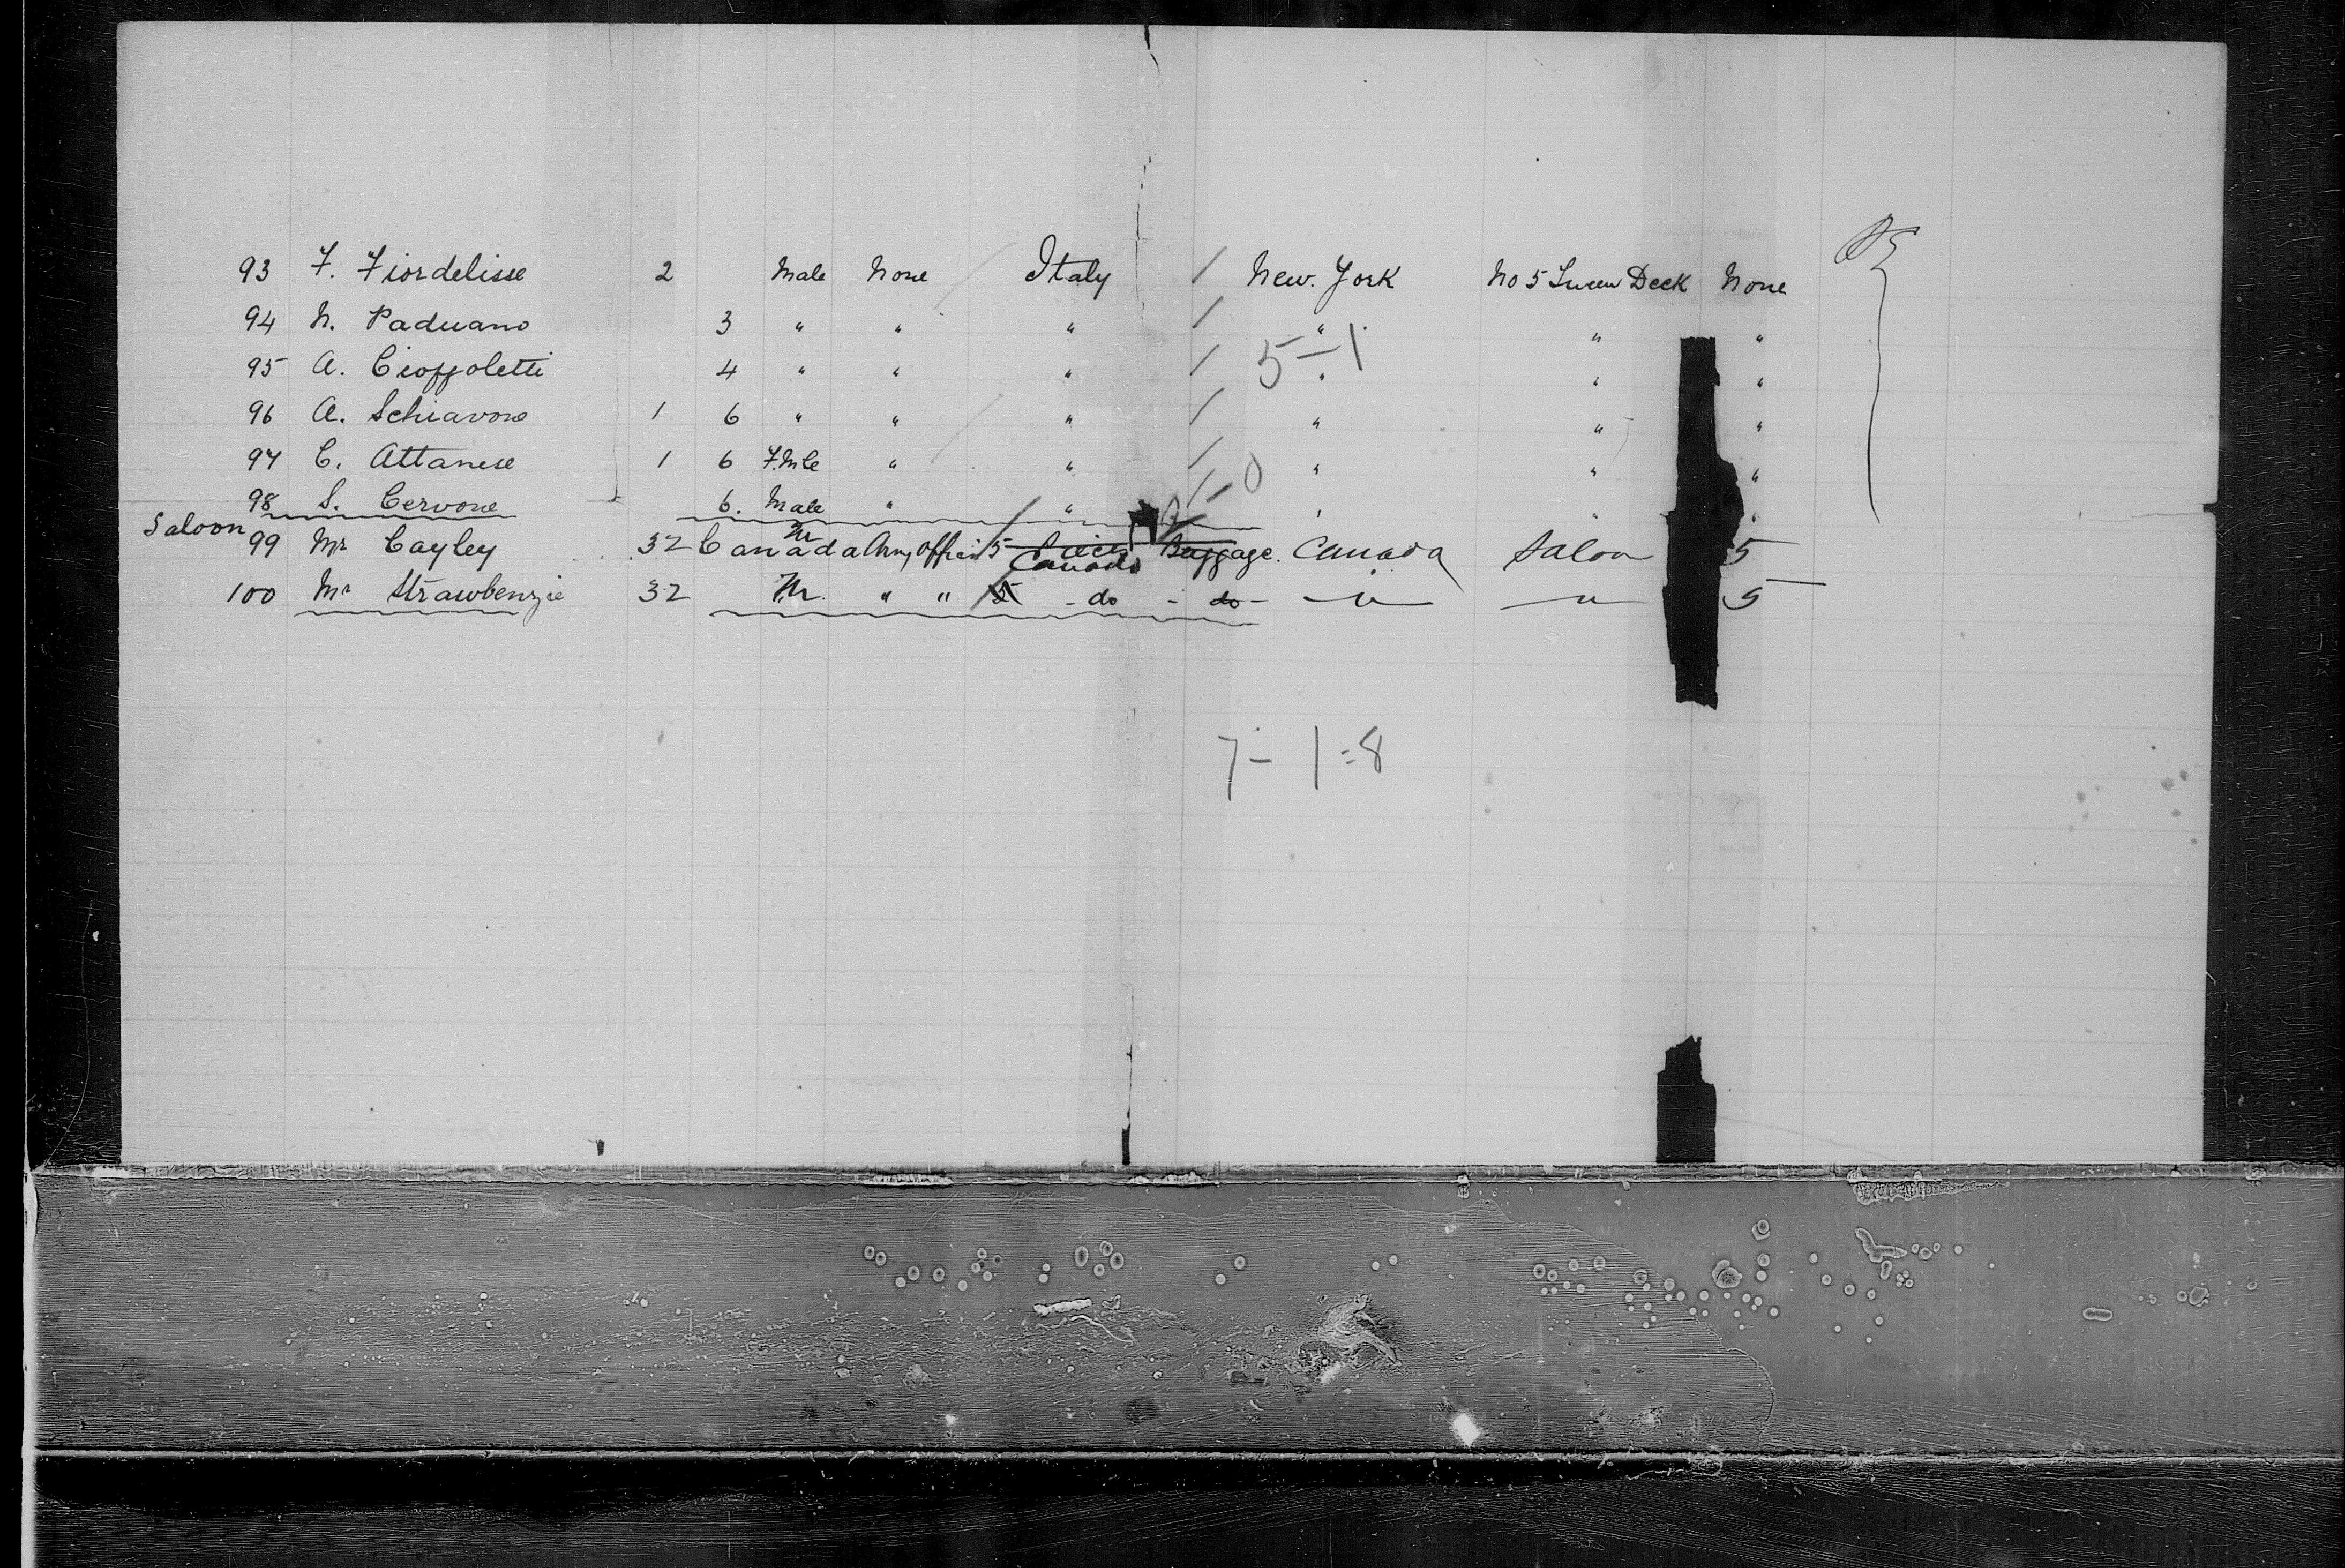 93 F. Fiordelisse 2 Male None Italy / New. York No 5 Tween Deck None
94 N. Paduano 3 " " " / " " "
95 A. Cioffoletti 4 " " " / " " "
5 - 1
96 A. Schiavone 1 6 " " " / " " "
97 C. Attanese 1 6 F.mle " " / " " "
98 S. Cervone 6. Male " " / - 0 " " "
Saloon
99 Mr Cayley 32 Canada M Army Officer 5 Pieces Baggage. Canada Canada Saloon 5
100 Mr Strawbenzie 32 M. " " 5 - do - do - " " 5
7 - 1 = 8